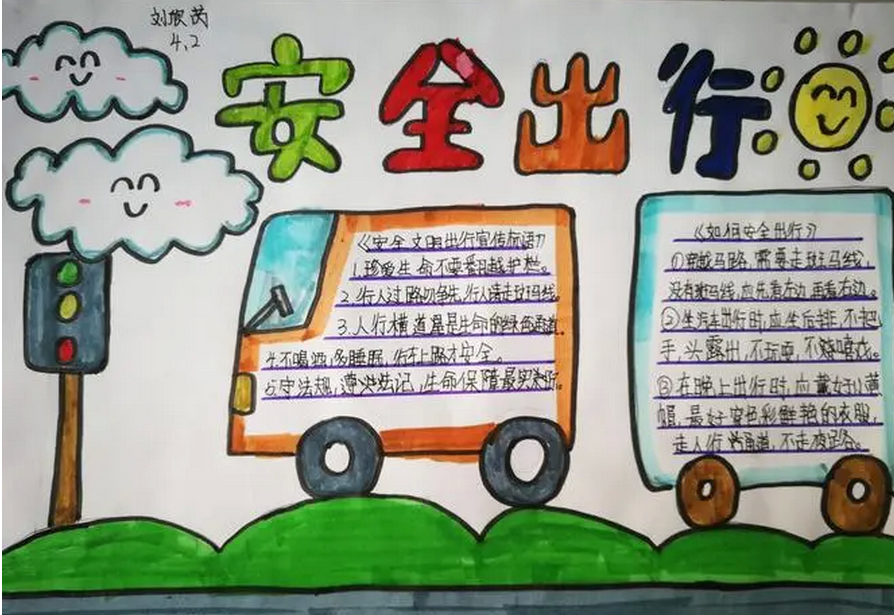 刘欣芮
4.2
安全出行
《安全文明出行宣传标语》
1.珍爱生命不要翻越护栏。
2.行人过路勿争先,行人请走斑马线。
3.人行横道是生命的绿色通道
4.不喝酒,多睡眠,行在上路才安全。
5.守法规,遵 记,生命保障最实际。
《如何安全出行》
①穿越马路,需要走斑马线,
没有斑马线,应先看左边,再看右边。
②坐汽车出行时,应坐后排,不把
手,头露出,不玩耍,不 嘻戏。
③在晚上出行时,应戴好小黄
帽,最好穿色彩鲜艳的衣服,
走人行 通道,不走夜路。